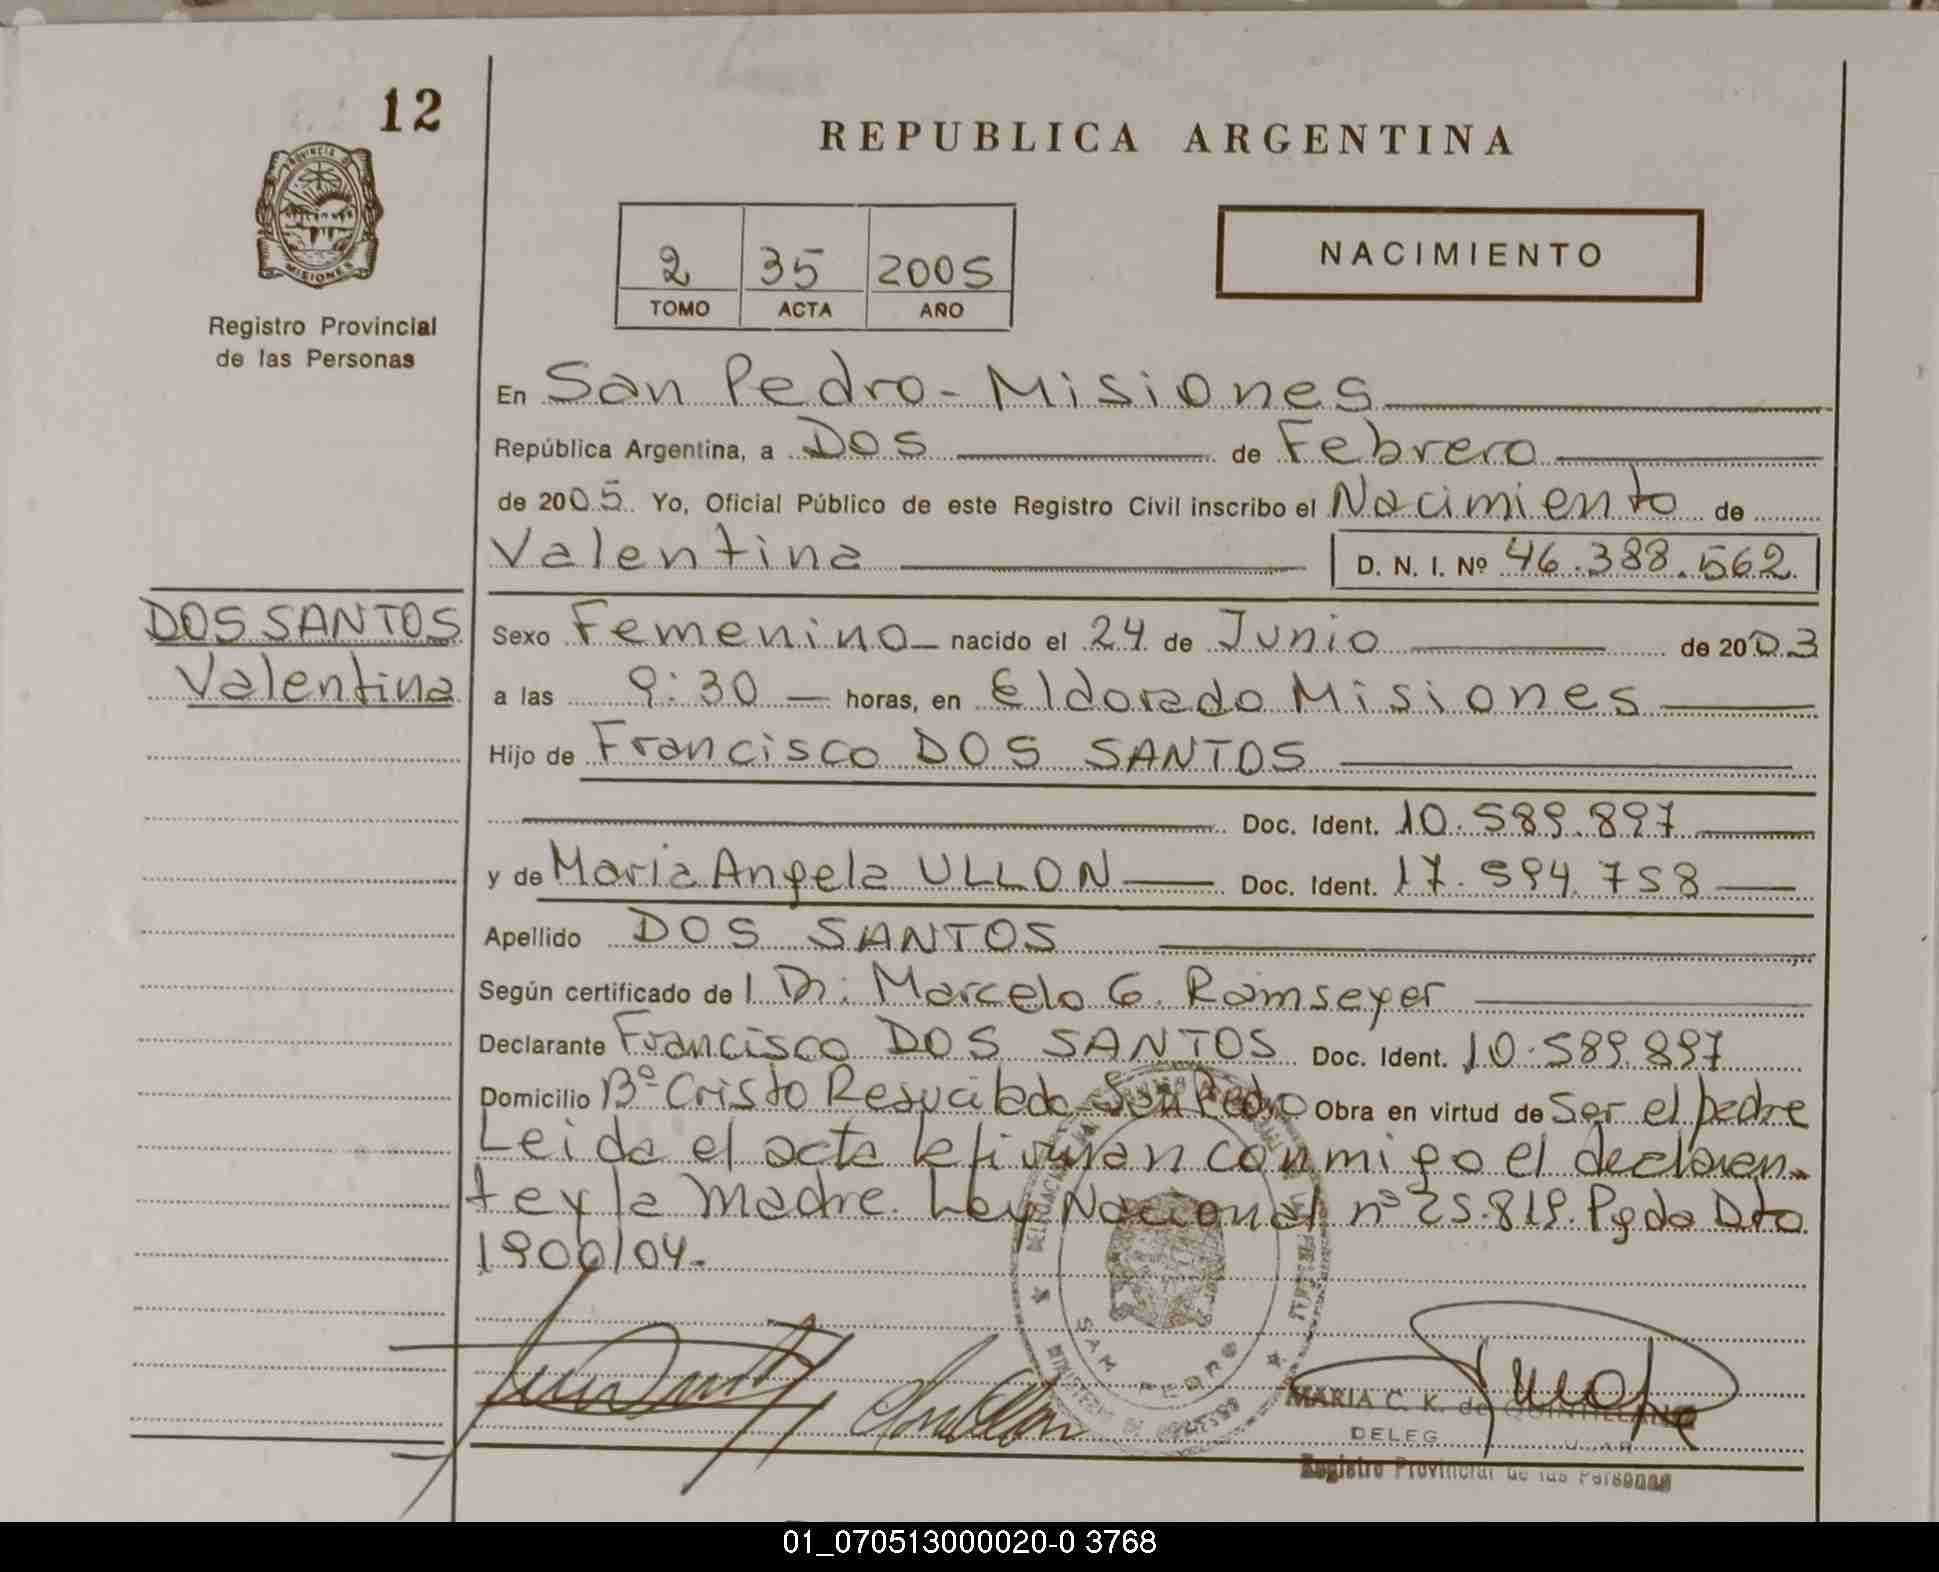 12
REPUBLICA ARGENTINA
PROVINCIA DE
MISIONES
Registro Provincial
de las Personas
2 35 2005
TOMO ACTA AÑO
NACIMIENTO
En San Pedro - Misiones
República Argentina, a Dos de Febrero
de 2005 Yo, Oficial Público de este Registro Civil inscribo el Nacimiento de
Valentina D. N. I. Nº 46.388.562
DOS SANTOS
Valentina
Sexo Femenino nacido el 24 de Junio de 2003
a las 9:30 horas, en Eldorado Misiones
Hijo de Francisco DOS SANTOS
Doc. Ident. 10.589.897
y de Maria Angela ULLON Doc. Ident. 17.594.758
Apellido DOS SANTOS
Según certificado del Dr: Marcelo G. Ramseyer
Declarante Francisco DOS SANTOS Doc. Ident. 10.589.897
Domicilio Bº Cristo Resucitado San Pedro Obra en virtud de Ser el padre
Leida el acta la firman conmigo el declaran-
te y la madre. Ley Nacional nº 25.819. Pgdo Dto
1900/04.
SAN PEDRO
MARIA C. K. de QUINTILLANO
DELEG
Registro Provincial de las Personas
01_070513000020-0 3768